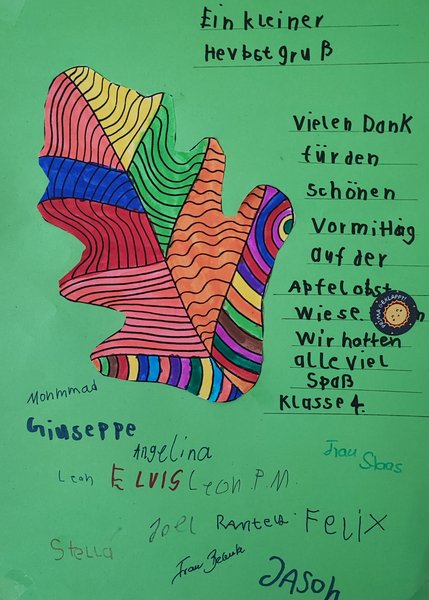 Ein kleiner
Herbstgruß
Vielen Dank
für den
schönen
Vormittag
auf der
Apfelobst
wiese.
Wir hatten
alle viel
Spaß
Klasse 4.
PRIMA GEKLAPPT!
Mohmmad
Giuseppe
Angelina
Frau Staas
Leon ELVIS Leon P.M.
Joel Felix
Stella
Frau
JASON